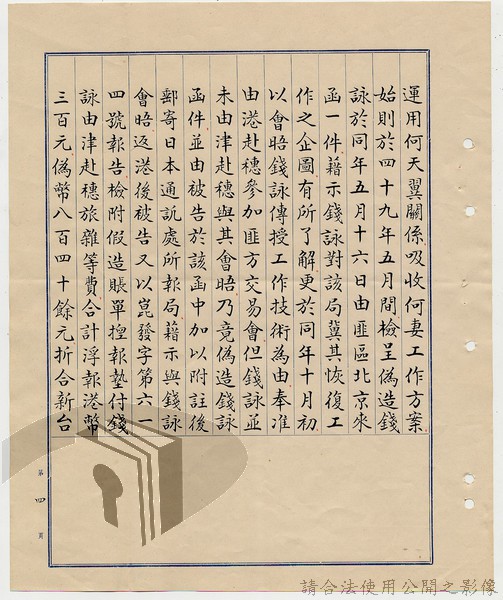 運用何天翼關係吸收何妻工作方案
始則於四十九年五月間檢呈偽造錢
詠於同年五月十六日由匪區北京來
函一件藉示錢詠對該局冀其恢復工
作之企圖有所了解更於同年十月初
以會晤錢詠傳授工作技術為由奉准
由港赴穗參加匪方交易會但錢詠並
未由津赴穗與其會晤乃竟偽造錢詠
函件並由被告於該函中加以附註後
郵寄日本通訊處所報局藉示與錢詠
會晤返港後被告又以崑發字第六一
四號報告檢附假造賬單捏報墊付錢
詠由津赴穗旅雜等費合計浮報港幣
三百元偽幣八百四十餘元折合新台
第四頁
請合法使用公開之影像